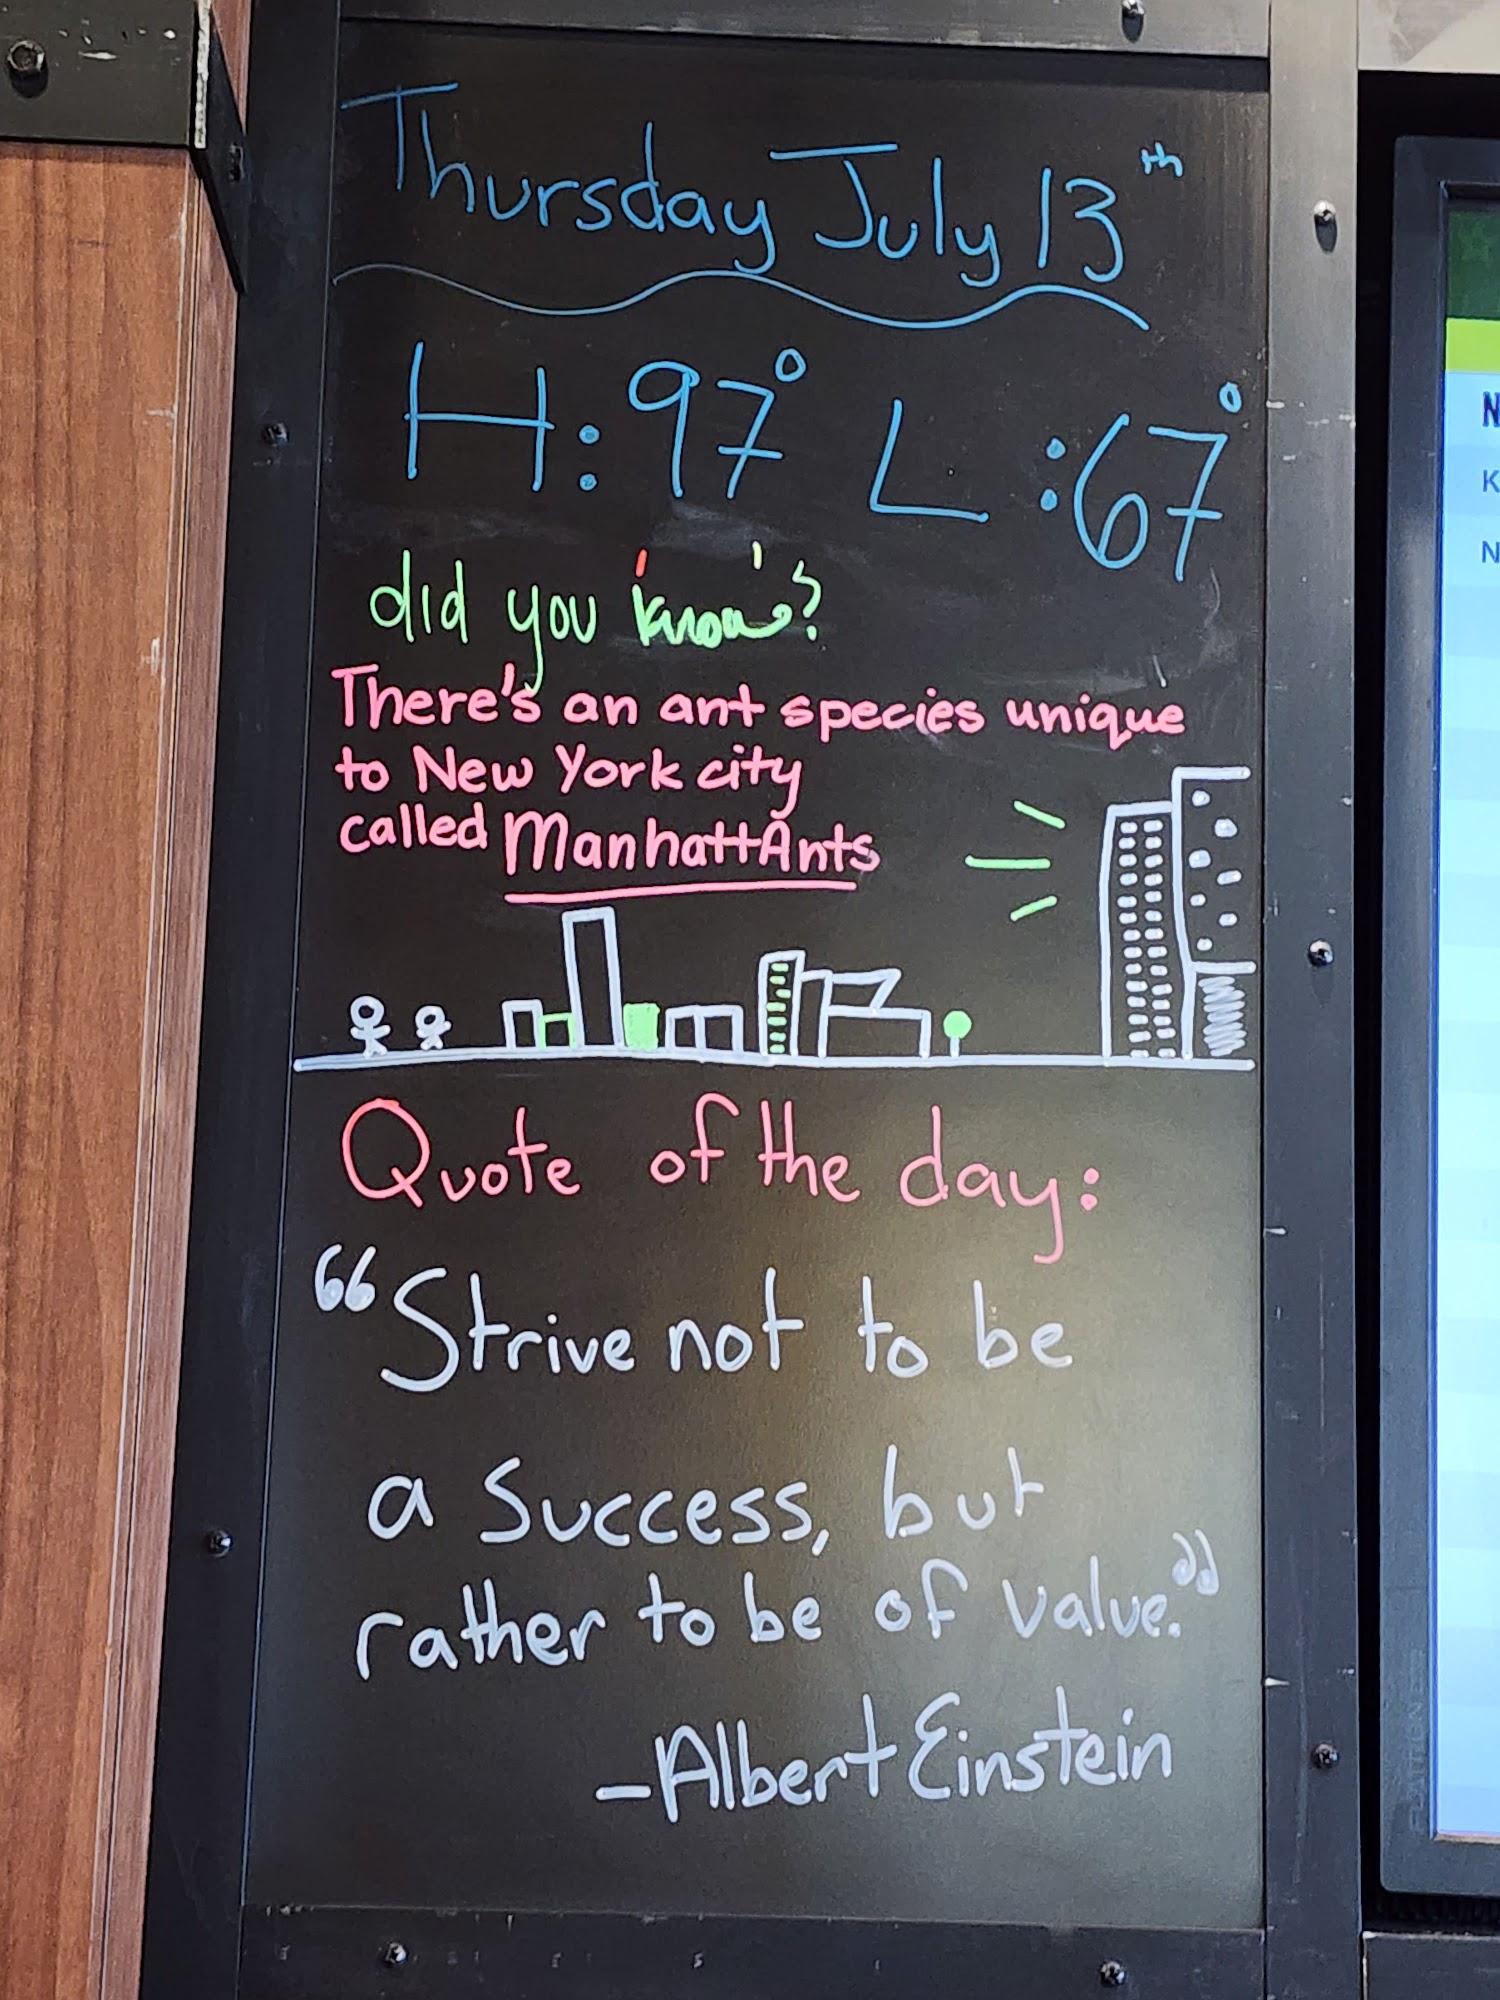 Thursday July 13th
H: 97° L: 67°
did you know?
There's an ant species unique
to New York city
called ManhattAnts
Quote of the day:
“Strive not to be
a success, but
rather to be of value.”
-Albert Einstein
N
K
N